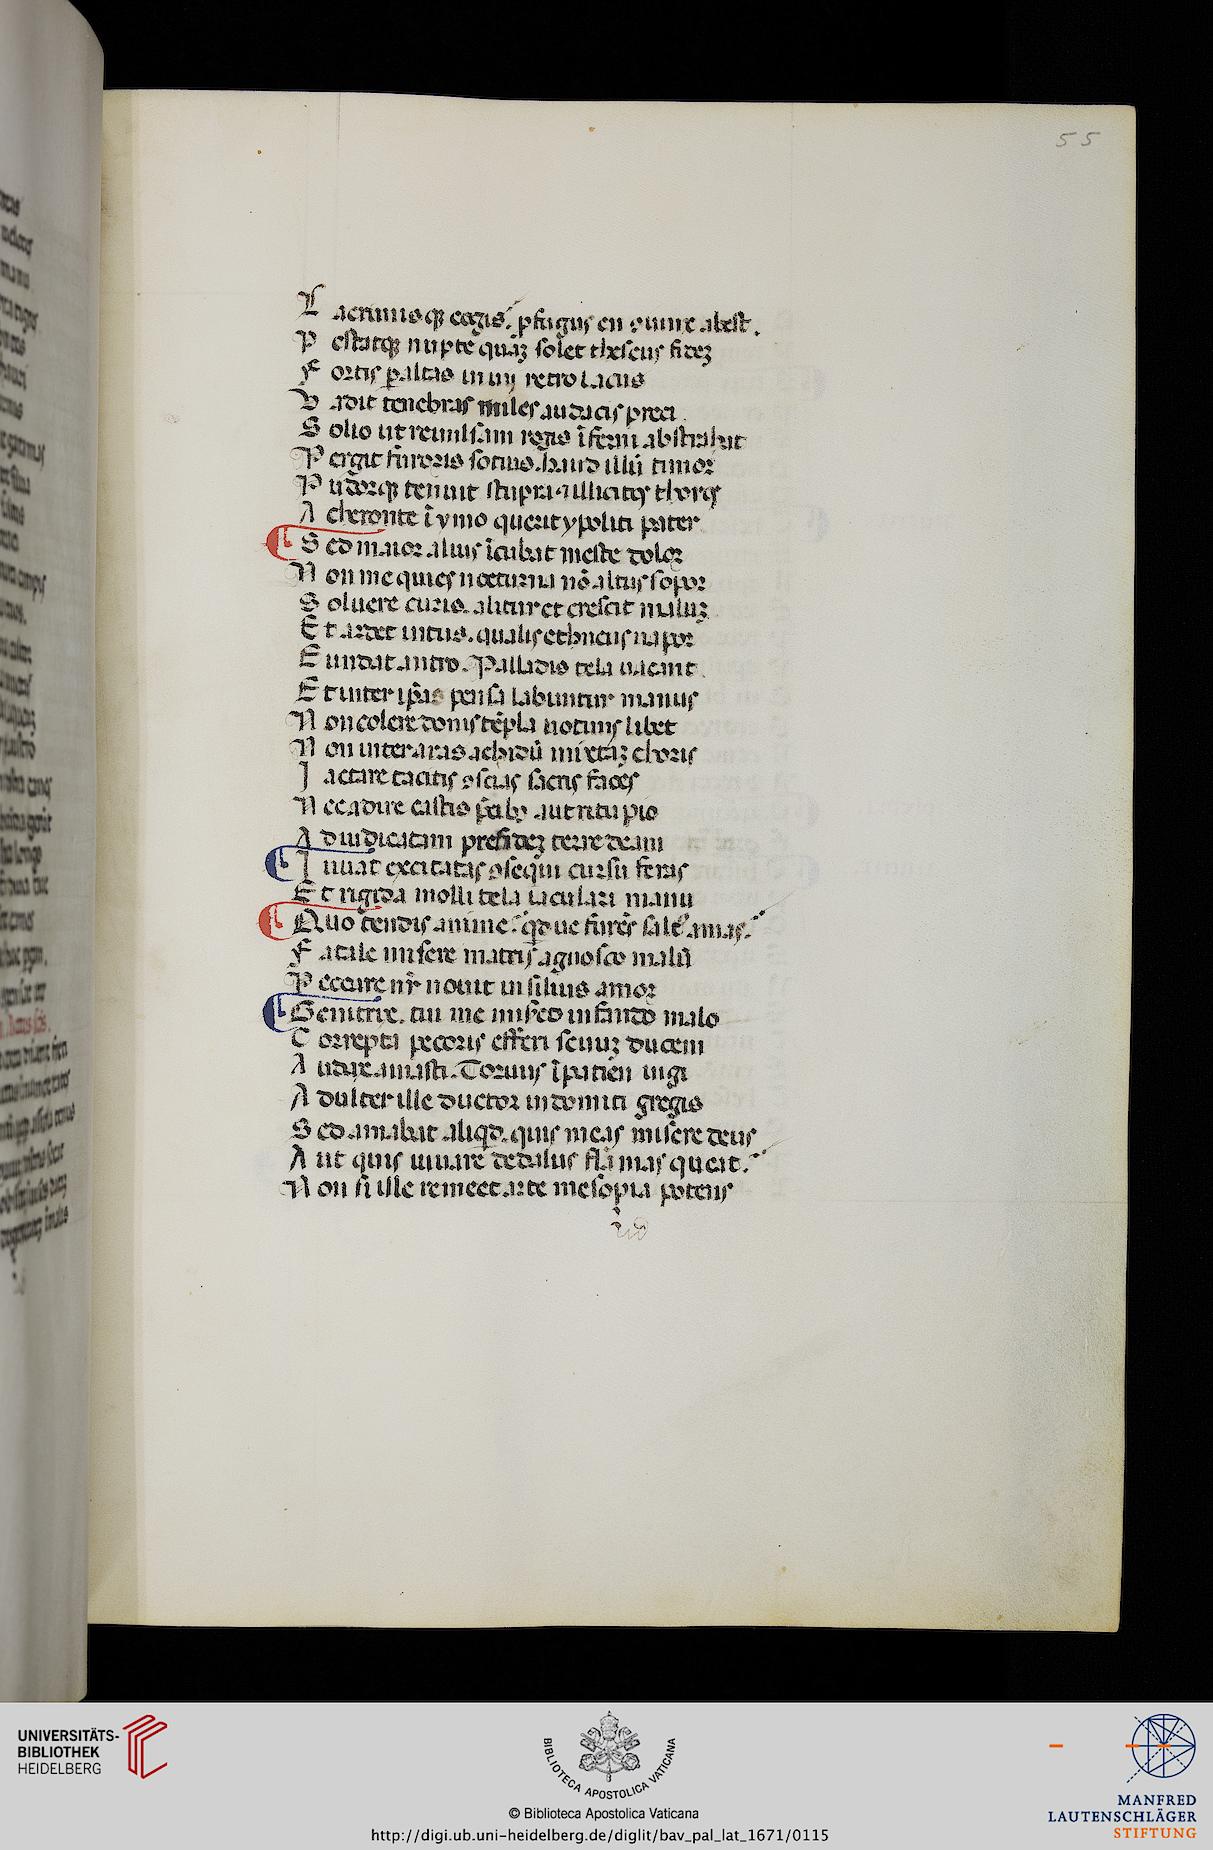 55
L acrimisqꝫ cogis. ꝓfugus en ꝯiunx abest.
P restatqꝫ nupte quāꝫ solet theseus fideꝫ
F ortis ꝑ altas inuij retro lacus
V adit tenebras miles audacis proci
S olio ut reuulsam regis īferni abstrahat
P ergit furoris socius. haud illū timor
P udorqꝫ tenuit stupra ⁊ illicitos thoros
A cheronte ī ymo querit ypoliti pater
S ed maior alius īcubat meste dolor
N on me quies nocturna nō altus sopor
S oluere curis. alitur et crescit maluꝫ
E t ardet intus. qualis ethneus uapor
E xundat antro. Palladis tela uacant
E t inter ipās pensa labuntur manus
N on colere donis tēpla uotiuis libet
N on inter aras achidū mixtaꝫ choris
I actare tacitis ꝯscias sacris faces
N ec adire castis p̄cibꝫ aut ritu pio
A diudicatam presideꝫ terre deam
I uuat excitatas ꝯsequi cursu feras
E t rigida molli tela iaculari manu
Q uo tendis anime. qͥd ue furēs saltꝰ amas.
F atale misere matris agnosco malū
P eccare nr̄ nouit in siluis amor
G enitrix. tui me miseret infando malo
C orrepta pecoris efferi seuuꝫ ducem
A udax amasti. Toruus īpatien iugi
A dulter ille ductor indomiti gregis
S ed amabat aliqͥd. quis meas misere deus
A ut quis iuuare dedalus flāmas queat.
N on si ille remeet arte mesopia potens
UNIVERSITÄTS-
BIBLIOTHEK
HEIDELBERG
BIBLIOTECA APOSTOLICA VATICANA
© Biblioteca Apostolica Vaticana
http://digi.ub.uni-heidelberg.de/diglit/bav_pal_lat_1671/0115
MANFRED
LAUTENSCHLÄGER
STIFTUNG